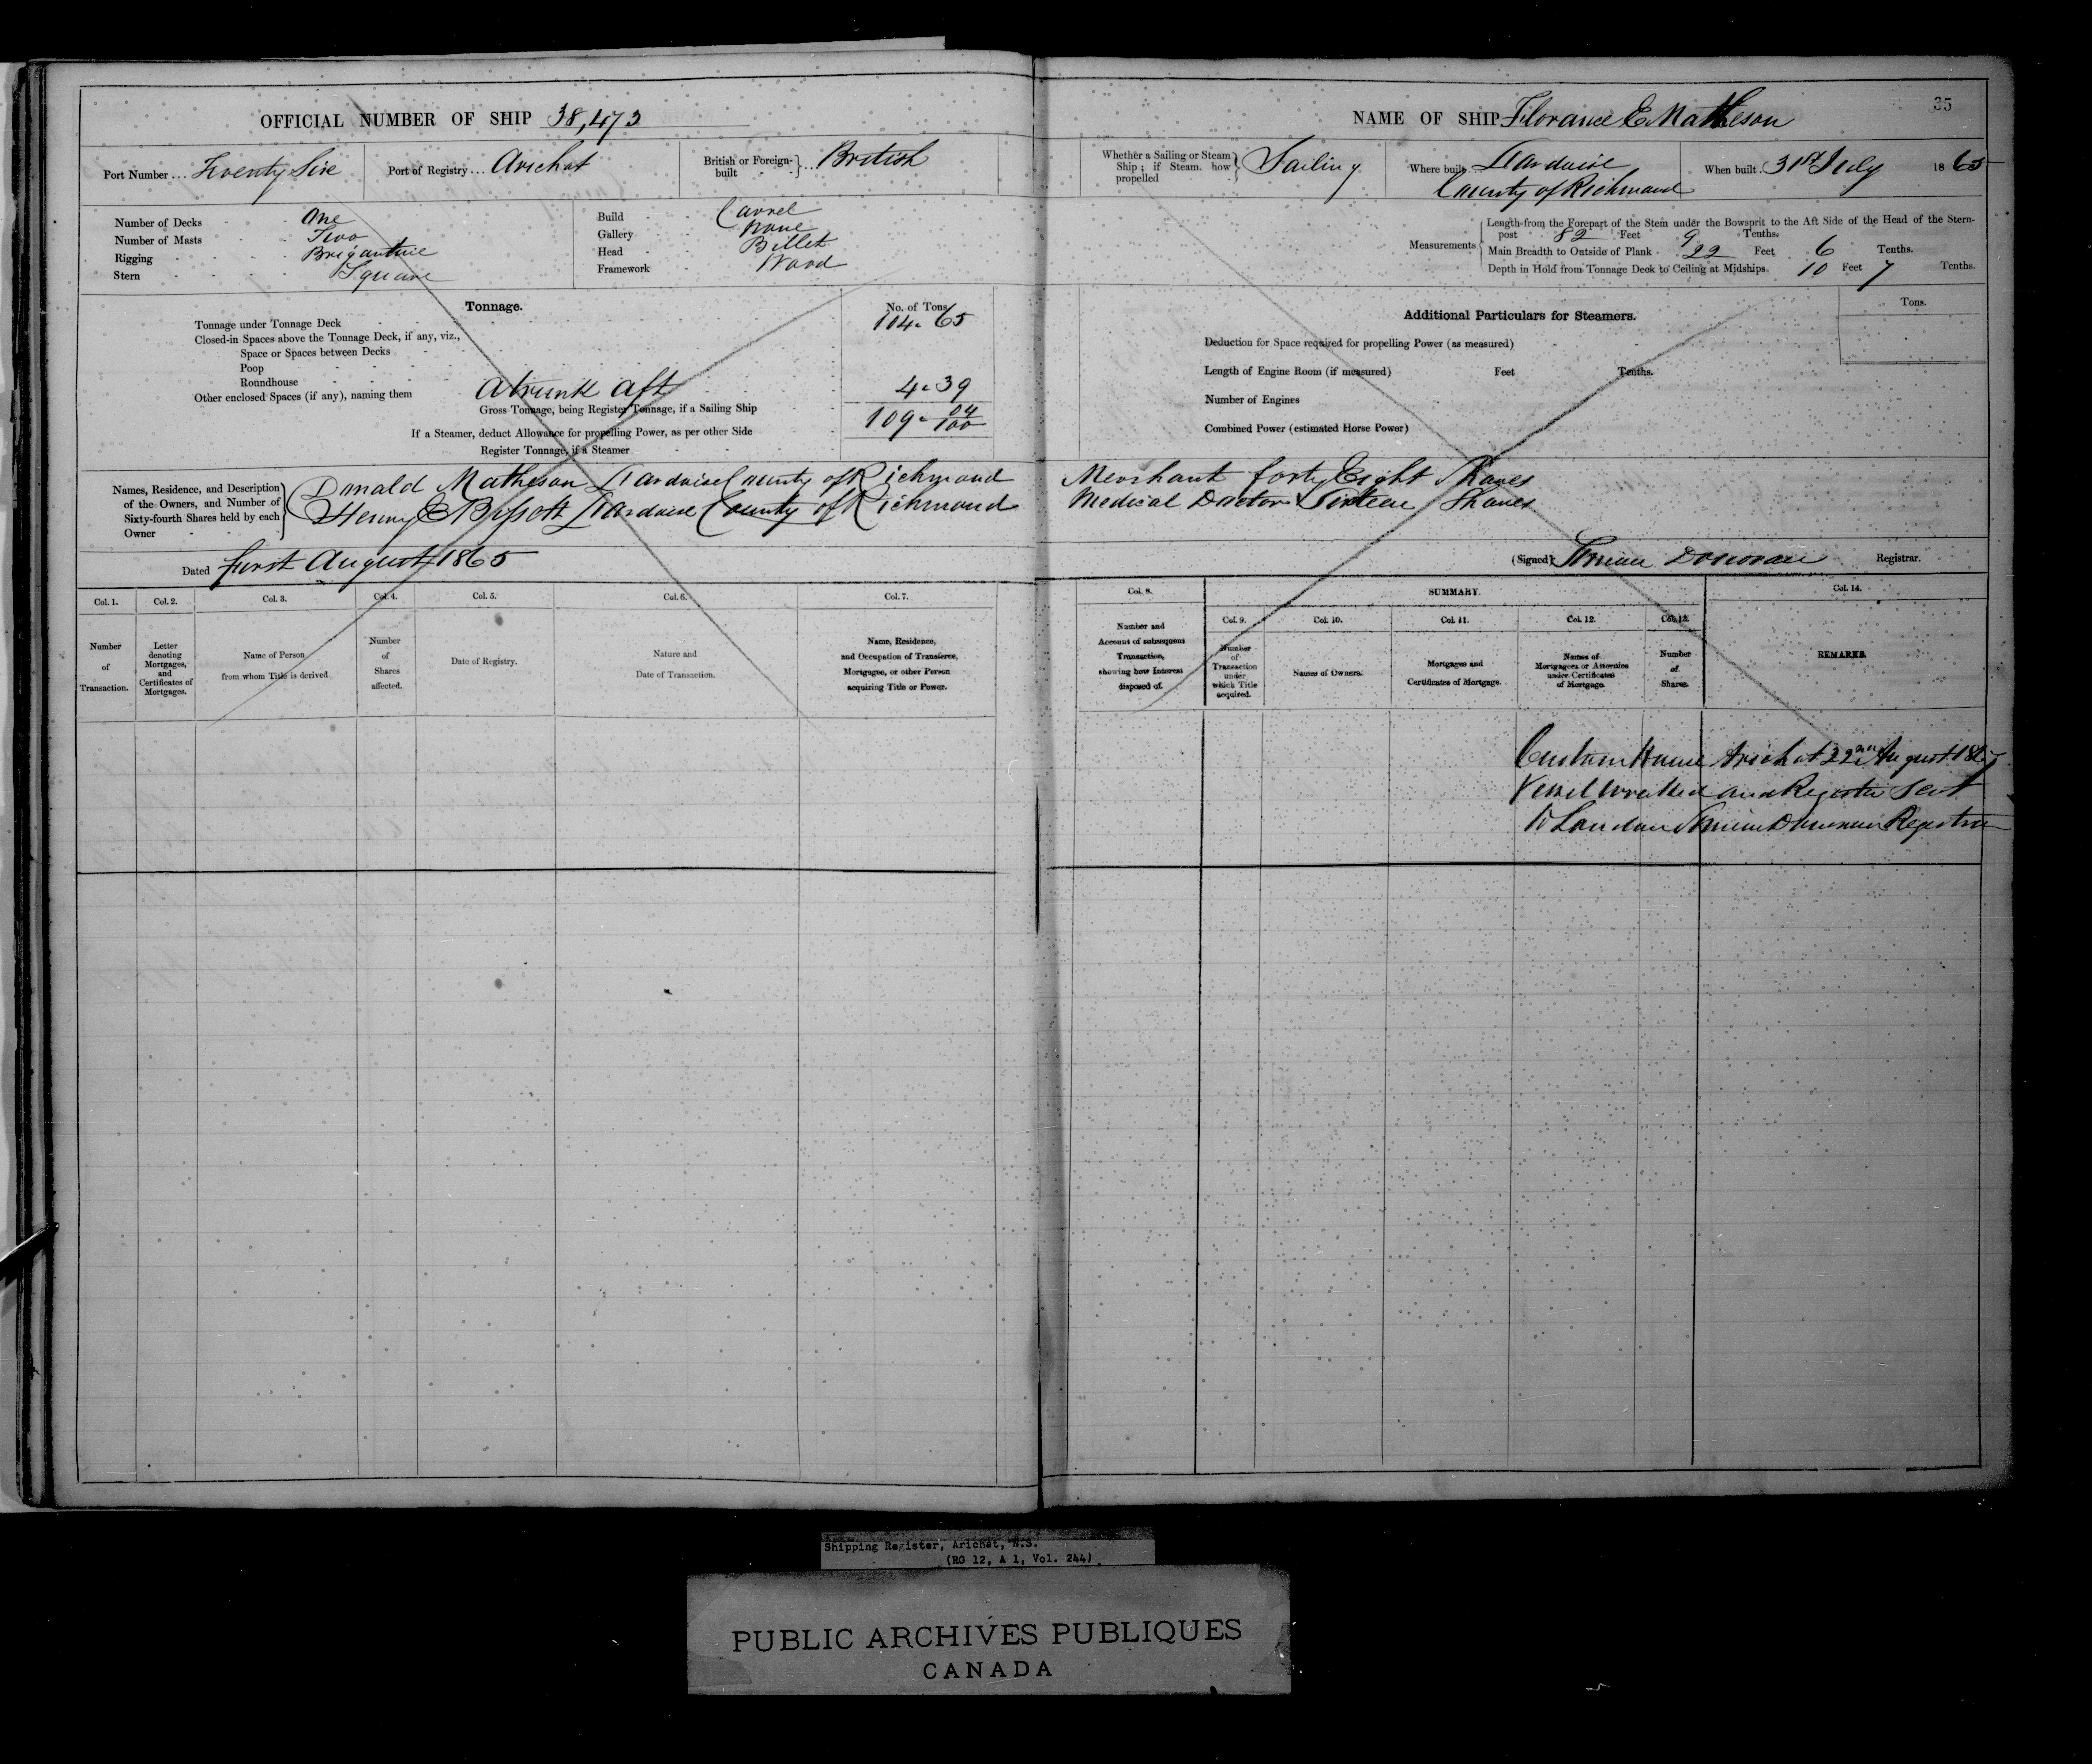 OFFICIAL NUMBER OF SHIP 38,473
Port Number ... Twenty Six
Port of Registry ... Arichat
British or Foreign-built } ... British
Number of Decks One
Number of Masts Two
Rigging Brigantine
Stern Square
Build Carvel
Gallery None
Head Billet
Framework Wood
Tonnage.
No. of Tons
Tonnage under Tonnage Deck 104.65
Closed-in Spaces above the Tonnage Deck, if any, viz.,
Space or Spaces between Decks
Poop
Roundhouse
Other enclosed Spaces (if any), naming them A trunk aft 4.39
Gross Tonnage, being Register Tonnage, if a Sailing Ship 109. 04/100
If a Steamer, deduct Allowance for propelling Power, as per other Side
Register Tonnage, if a Steamer
Names, Residence, and Description of the Owners, and Number of Sixty-fourth Shares held by each Owner
Donald Matheson Lardoise County of Richmond Merchant forty Eight Shares
Henry E Bissett Lardoise County of Richmond Medical Doctor Sixteen Shares
Dated first August 1865
Col. 1.
Number of Transaction.
Col. 2.
Letter denoting Mortgages, and Certificates of Mortgages.
Col. 3.
Name of Person from whom Title is derived
Col. 4.
Number of Shares affected.
Col. 5.
Date of Registry.
Col. 6.
Nature and Date of Transaction.
Col. 7.
Name, Residence, and Occupation of Transferee, Mortgagee, or other Person acquiring Title or Power.
35
NAME OF SHIP Florance E. Matheson
Whether a Sailing or Steam Ship; if Steam. how propelled } Sailing
Where built. Lardoise
County of Richmond
When built. 31st July 1865
Measurements
Length from the Forepart of the Stem under the Bowsprit to the Aft Side of the Head of the Stern-
post 82 Feet 9 Tenths.
Main Breadth to Outside of Plank 22 Feet 6 Tenths.
Depth in Hold from Tonnage Deck to Ceiling at Midships. 10 Feet 7 Tenths.
Additional Particulars for Steamers.
Tons.
Deduction for Space required for propelling Power (as measured)
Length of Engine Room (if measured) Feet Tenths.
Number of Engines
Combined Power (estimated Horse Power)
(Signed) Donovan Registrar.
Col. 8.
Number and Account of subsequent Transaction, showing how Interest disposed of.
SUMMARY.
Col. 9.
Number of Transaction under which Title acquired.
Col. 10.
Names of Owners.
Col. 11.
Mortgages and Certificates of Mortgage.
Col. 12.
Names of Mortgagees or Attornies under Certificates of Mortgage.
Col. 13.
Number of Shares.
Col. 14.
REMARKS.
Custom House Arichat 22nd August
Vessel wrecked and Register sent
to London Donovan Registrar
Shipping Register, Arichat, N.S.
(RG 12, A 1, Vol. 244)
PUBLIC ARCHIVES PUBLIQUES
CANADA